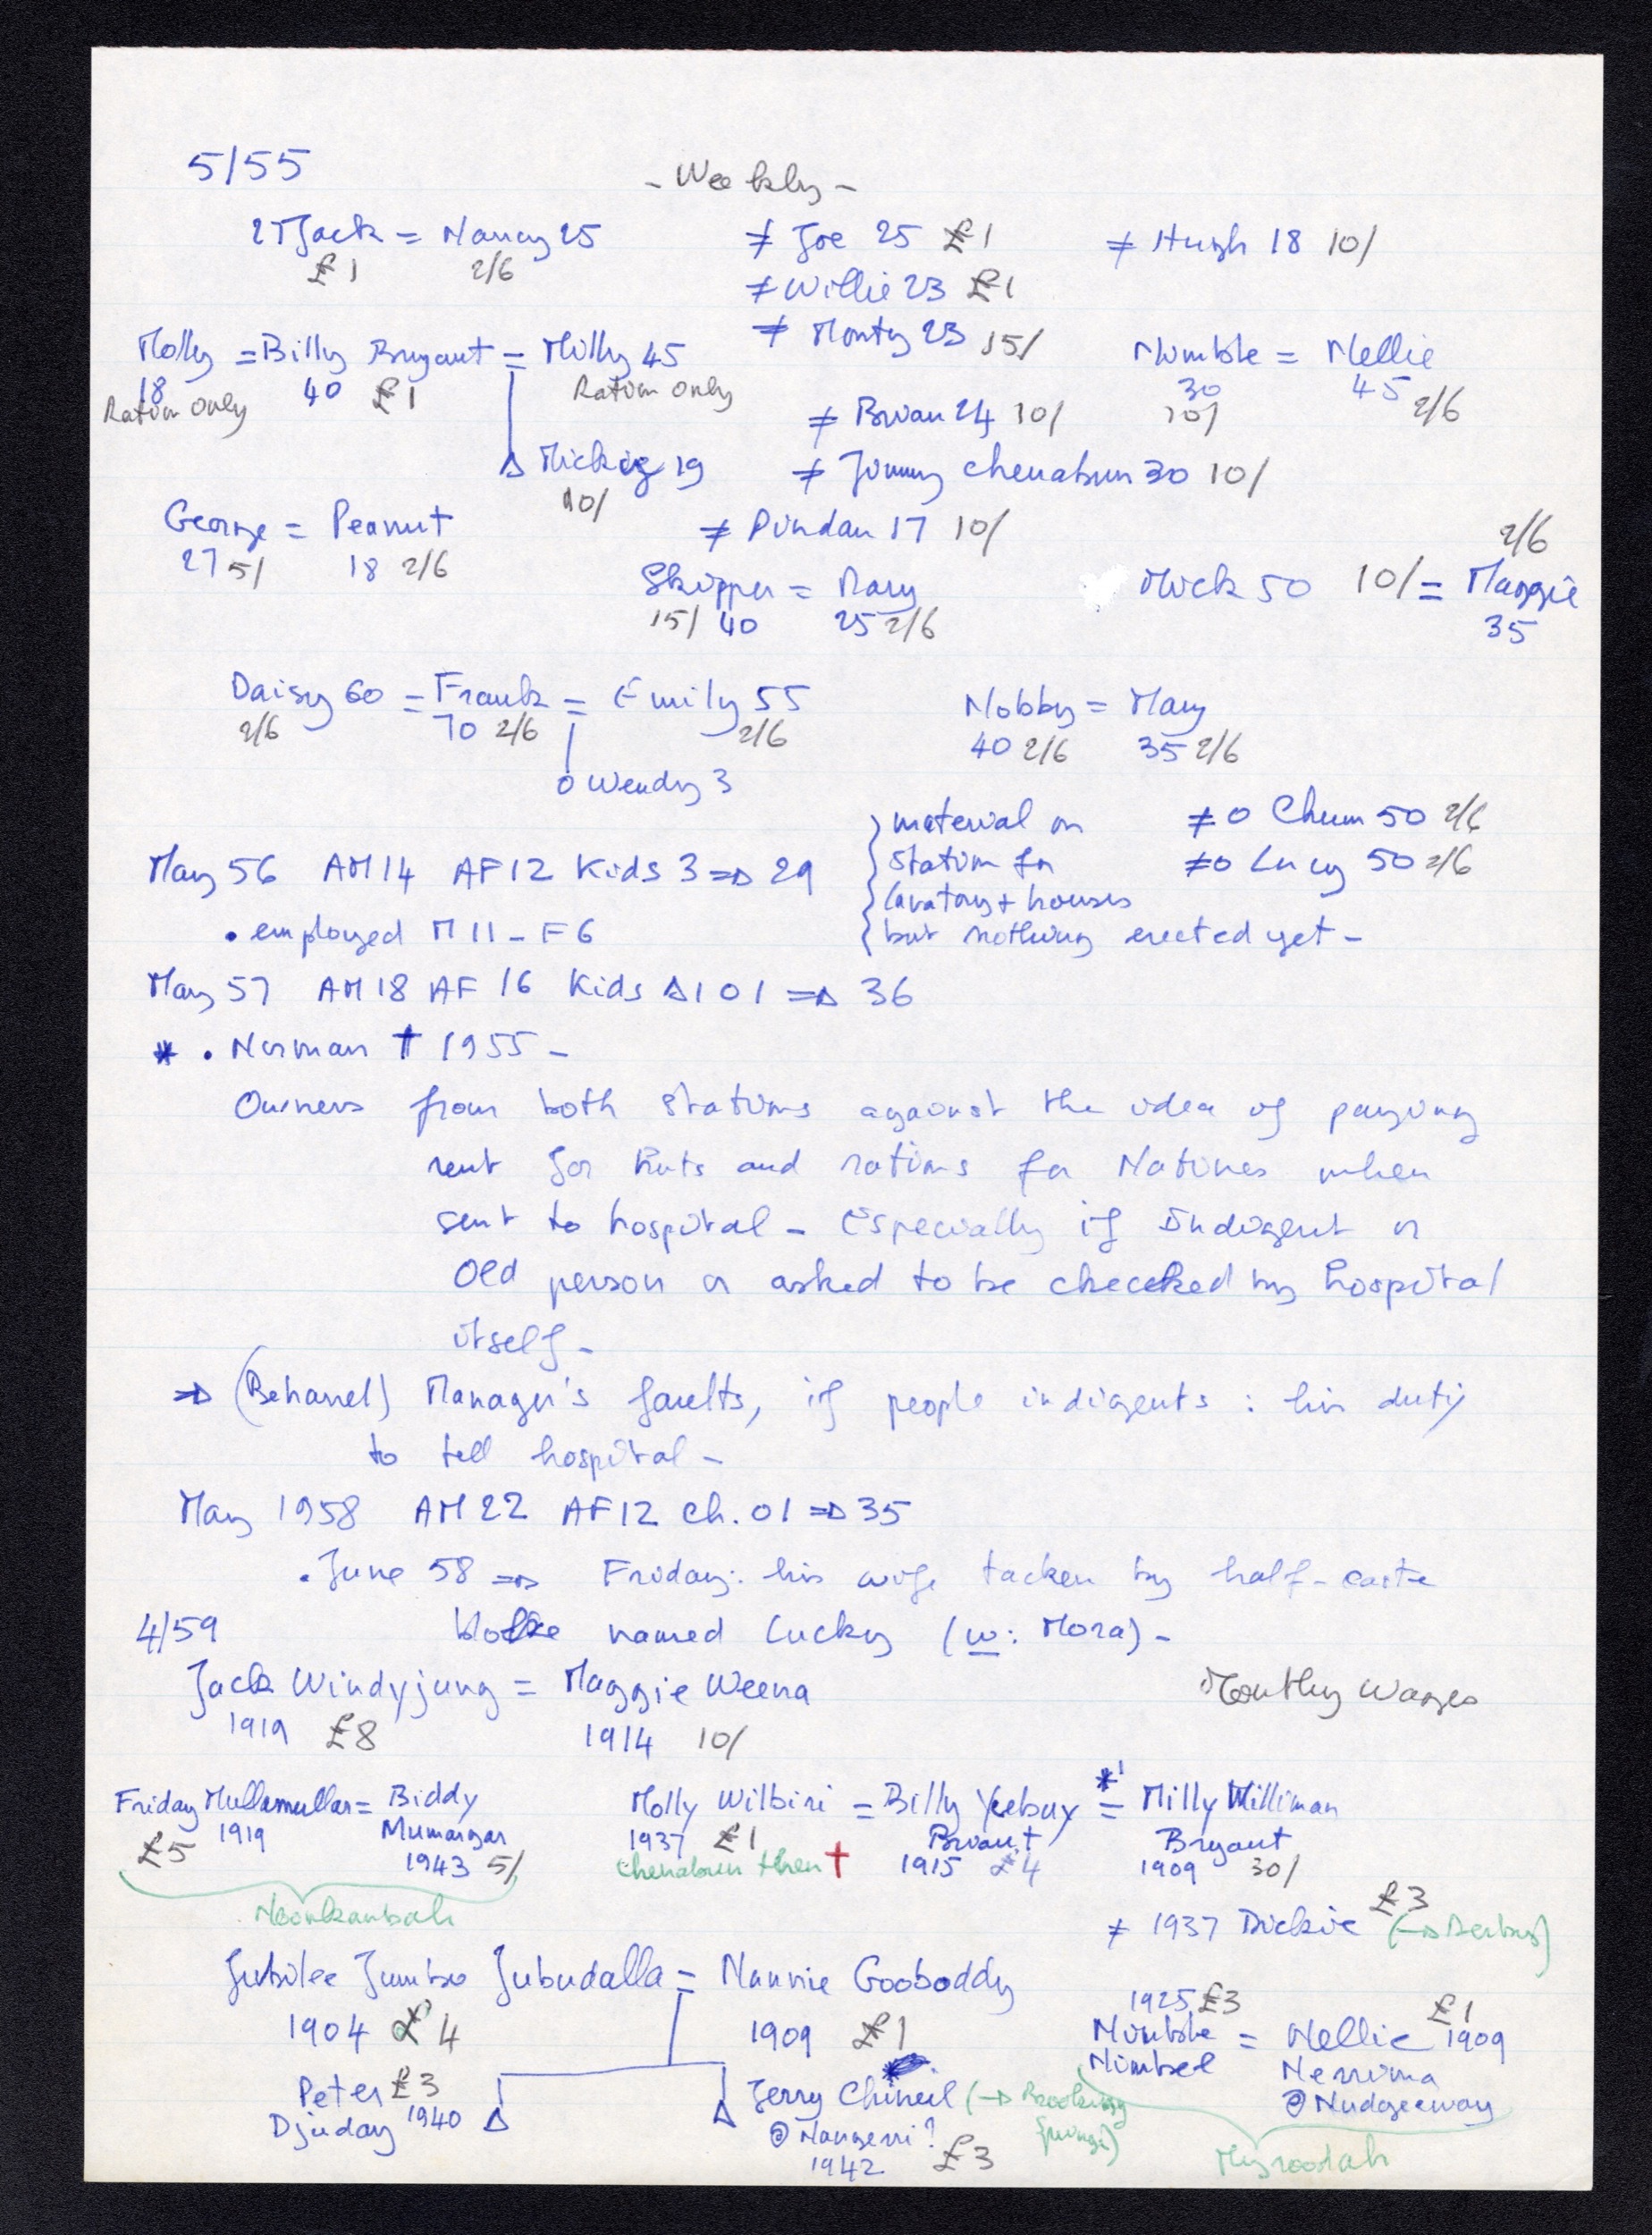 5/55
- Weekly -
27 Jack = Nancy 25 ≠ Joe 25 £1 ≠ Hugh 18 10/
£1 2/6
≠ Willie 23 £1
≠ Monty 23 15/
Molly = Billy Bryant = Milly 45 Nimble = Nellie
18 40 £1 Ration only 30 45
Ration only 10/ 2/6
≠ Brian 24 10/
Δ Mickey 19 ≠ Jimmy Chenabun 30 10/
10/
George = Peanut ≠ Pindan 17 10/
27 5/ 18 2/6 2/6
Skipper = Mary Mick 50 10/ = Maggie
15/ 40 25 2/6 35
Daisy 60 = Frank = Emily 55 Nobby = Mary
2/6 70 2/6 2/6 40 2/6 35 2/6
O Wendy 3
material on ≠ O Chum 50 2/6
May 56 AM 14 AF 12 Kids 3 ⇒ 29 station for ≠ O Lucy 50 2/6
lavatory + houses
• employed M 11 - F 6 but nothing erected yet -
May 57 AM 18 AF 16 Kids Δ1 O1 ⇒ 36
* • Norman † 1955 -
Owners from both stations against the idea of paying
rent for huts and rations for Natives when
sent to hospital - Especially if Indigent or
Old person or asked to be checked by hospital
itself -
⇒ (Behanel) Manager's faults, if people indigents : his duty
to tell hospital -
May 1958 AM 22 AF 12 Ch. O1 ⇒ 35
• June 58 ⇒ Friday: his wife tacken by half-caste
4/59 bloke named Lucky (w: Mora) -
Jack Windyjung = Maggie Weena Monthly Wages
1919 £8 1914 10/
Friday Mullamullar = Biddy Molly Wilbiri = Billy Yeebuy *' = Milly Milliman
£5 1919 Mumangar 1937 £1 Bryant Bryant
1943 5/ Chenabun then † 1915 £4 1909 30/
Noonkanbah
≠ 1937 Dickie £3 (→ Derby)
Jubilee Jumbo Jubudalla = Nannie Gooboddy
1904 £4 1909 £1
1925 £3 £1
Nimble = Nellie 1909
Nimbel Nerrima
@ Nudgeeway
Peter £3 Jerry Chineil (→ Brooking
Djuday 1940 Δ Δ @ Nangerri? Springs)
1942 £3
Myroodah